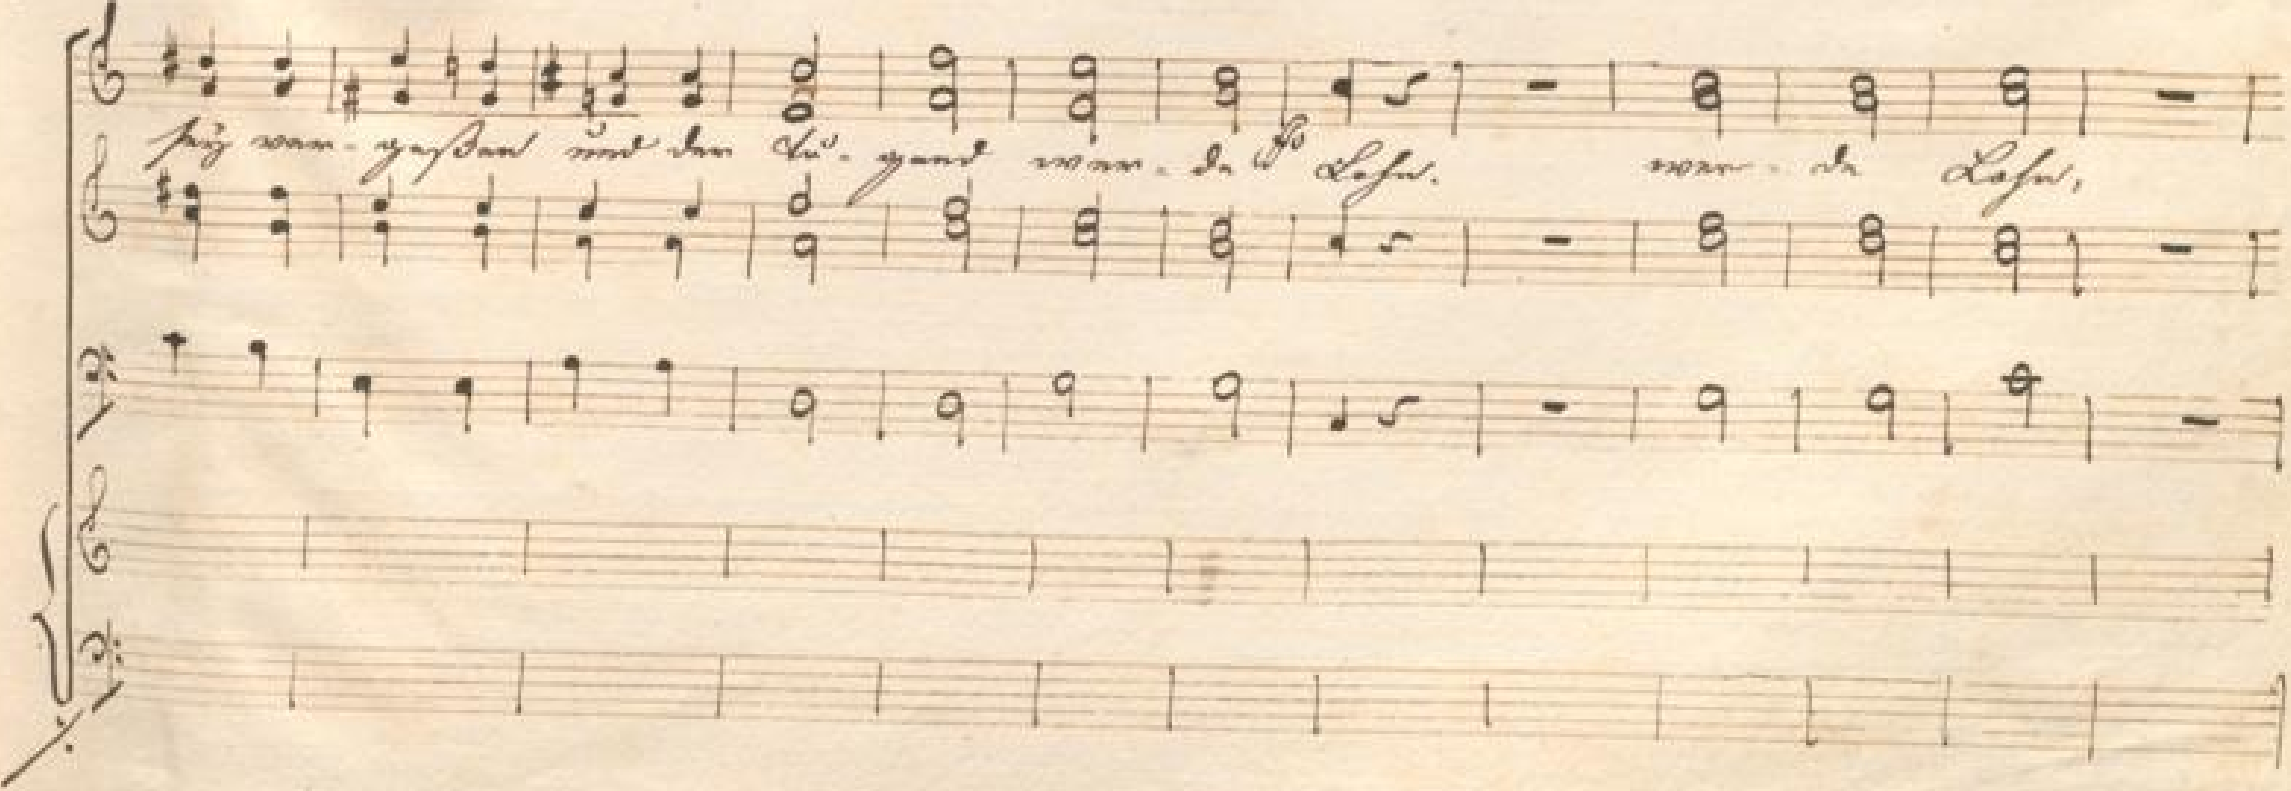 sey ver- geßen und der Tu- gend wer- de Lohn. wer- de Lohn,